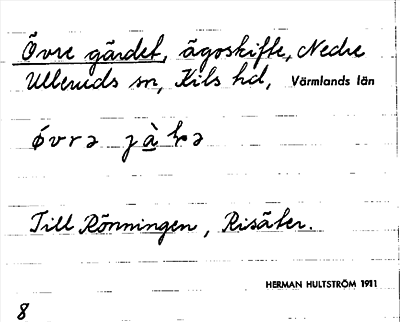 Övre gärdet, ägoskifte, Nedre
Ulleruds sn, Kils hd, Värmlands län
Till Rönningen, Risäter.
HERMAN HULTSTRÖM 1911
8